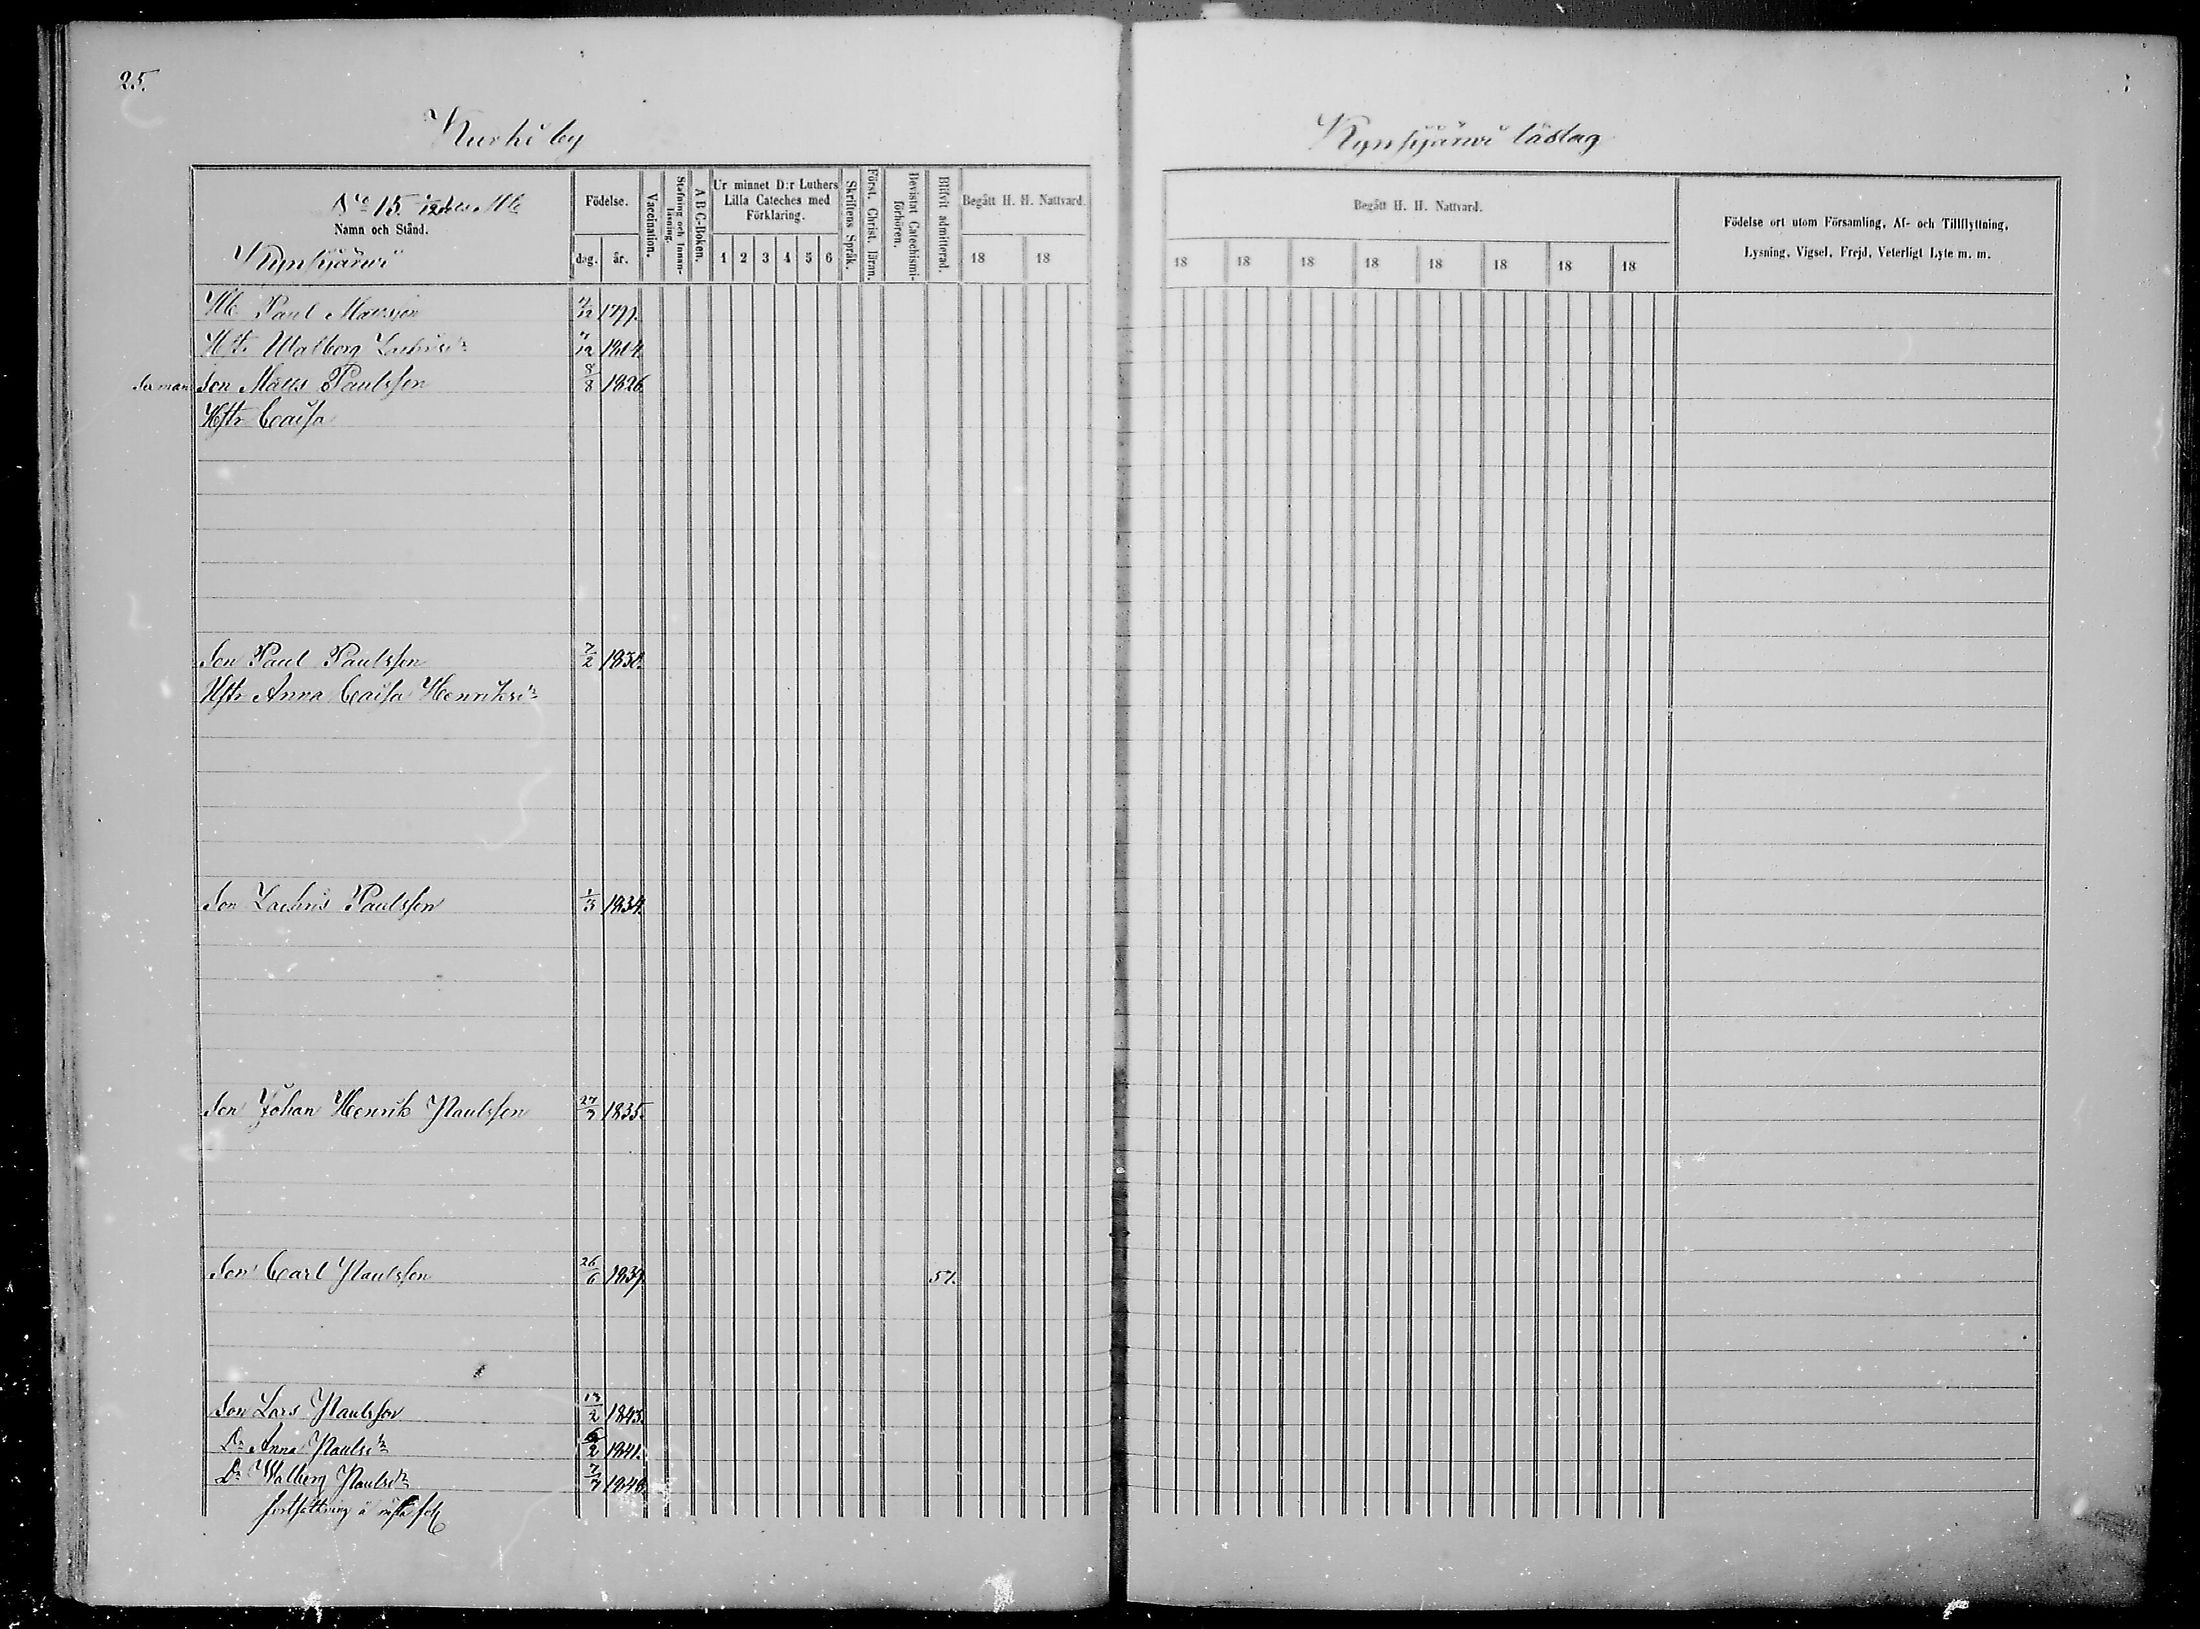 25.
Kurki by
Kynsijärvi låslag
No 15.
Namn och Stånd.
Kynsijärvi
Födelse.
dag. år.
Vaccination.
Stafning och Innanläsning.
A B C-Boken.
Ur minnet D:r Luthers Lilla Cateches med Förklaring.
1 2 3 4 5 6
Skriftens Språk.
Först. Christ. läran.
Bevistat Catechismiförhören.
Blifvit admitterad.
Begått H. H. Nattvard.
18 18
Begått H. H. Nattvard.
18 18 18 18 18 18 18 18
Födelse ort utom Församling, Af- och Tillflyttning,
Lysning, Vigsel, Frejd, Veterligt Lyte m. m.
Paul Matsson 7/12 1799.
Hst. Walborg Zachrisdr 7/12 1804.
Son Matts Paulsson 8/8 1826.
Hstr Caisa
Son Paul Paulsson 7/2 1830.
Hstr Anna Caisa Henriksdr
Son Zachris Paulsson 1/3 1834.
Son Johan Henrik Paulsson 27/7 1835.
Son Carl Paulsson 26/6 1839. 57.
Son Lars Paulsson 17/2 1843.
Dr Anna Paulsdr 2 1841.
Dr Walborg Paulsdr 7/7 1848.
fortsättning å nästa sid